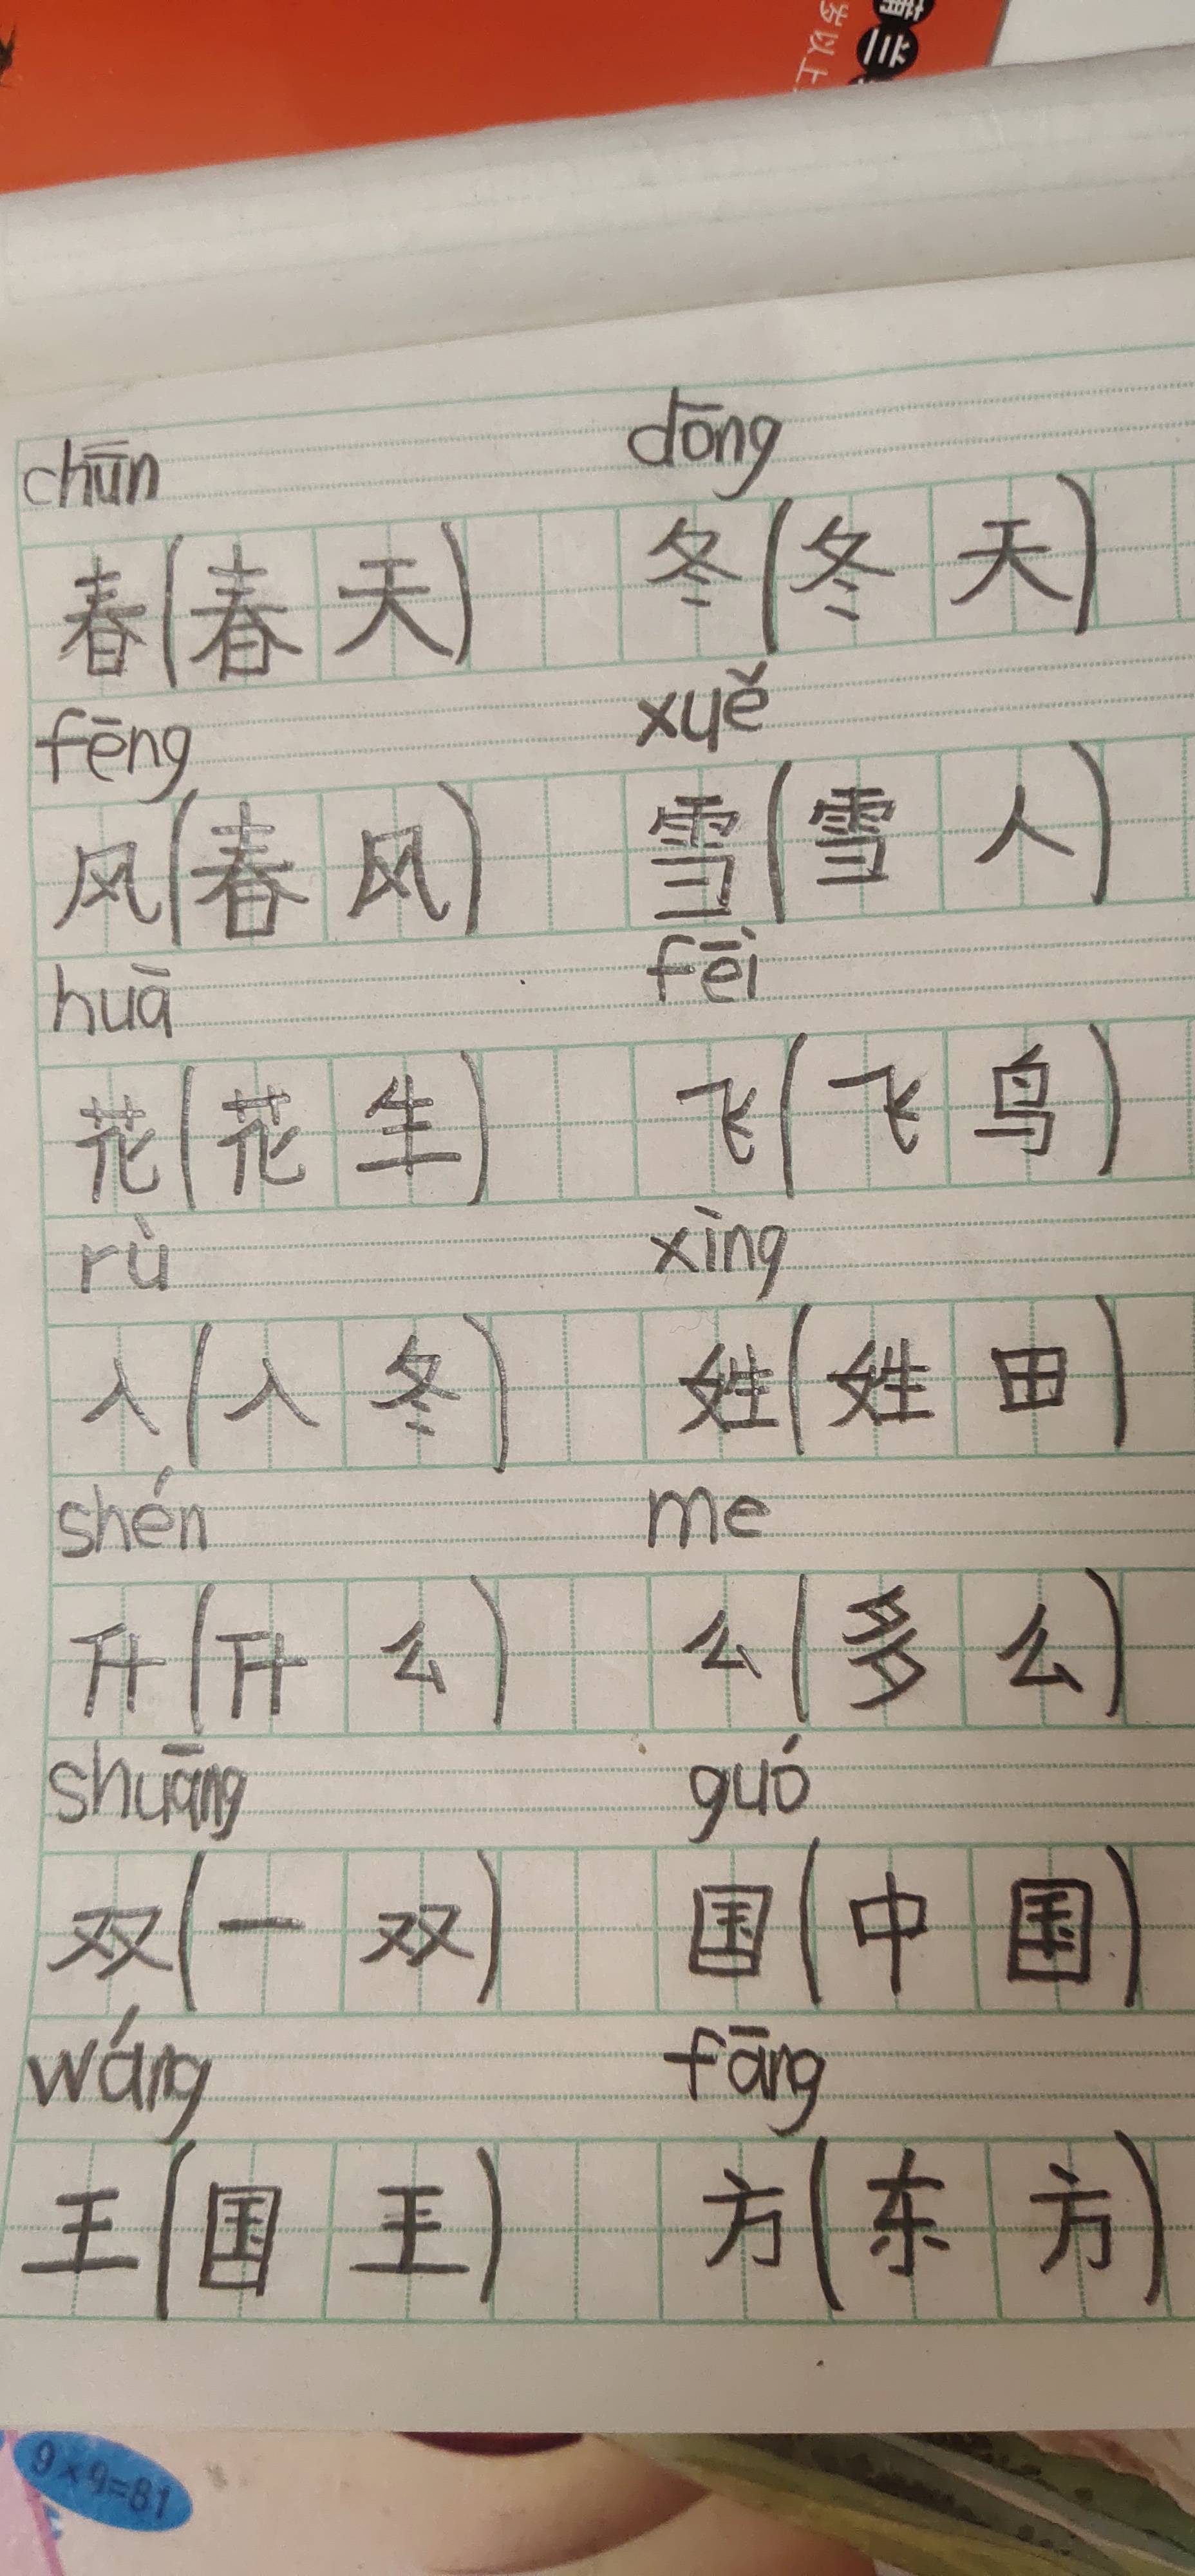 chūn dōng
春(春天) 冬(冬天)
fēng xuě
风(春风) 雪(雪人)
huā fēi
花(花生) 飞(飞鸟)
rù xìng
入(入冬) 姓(姓田)
shén me
什(什么) 么(多么)
shuāng guó
双(一双) 国(中国)
wáng fāng
王(国王) 方(东方)
9×9=81